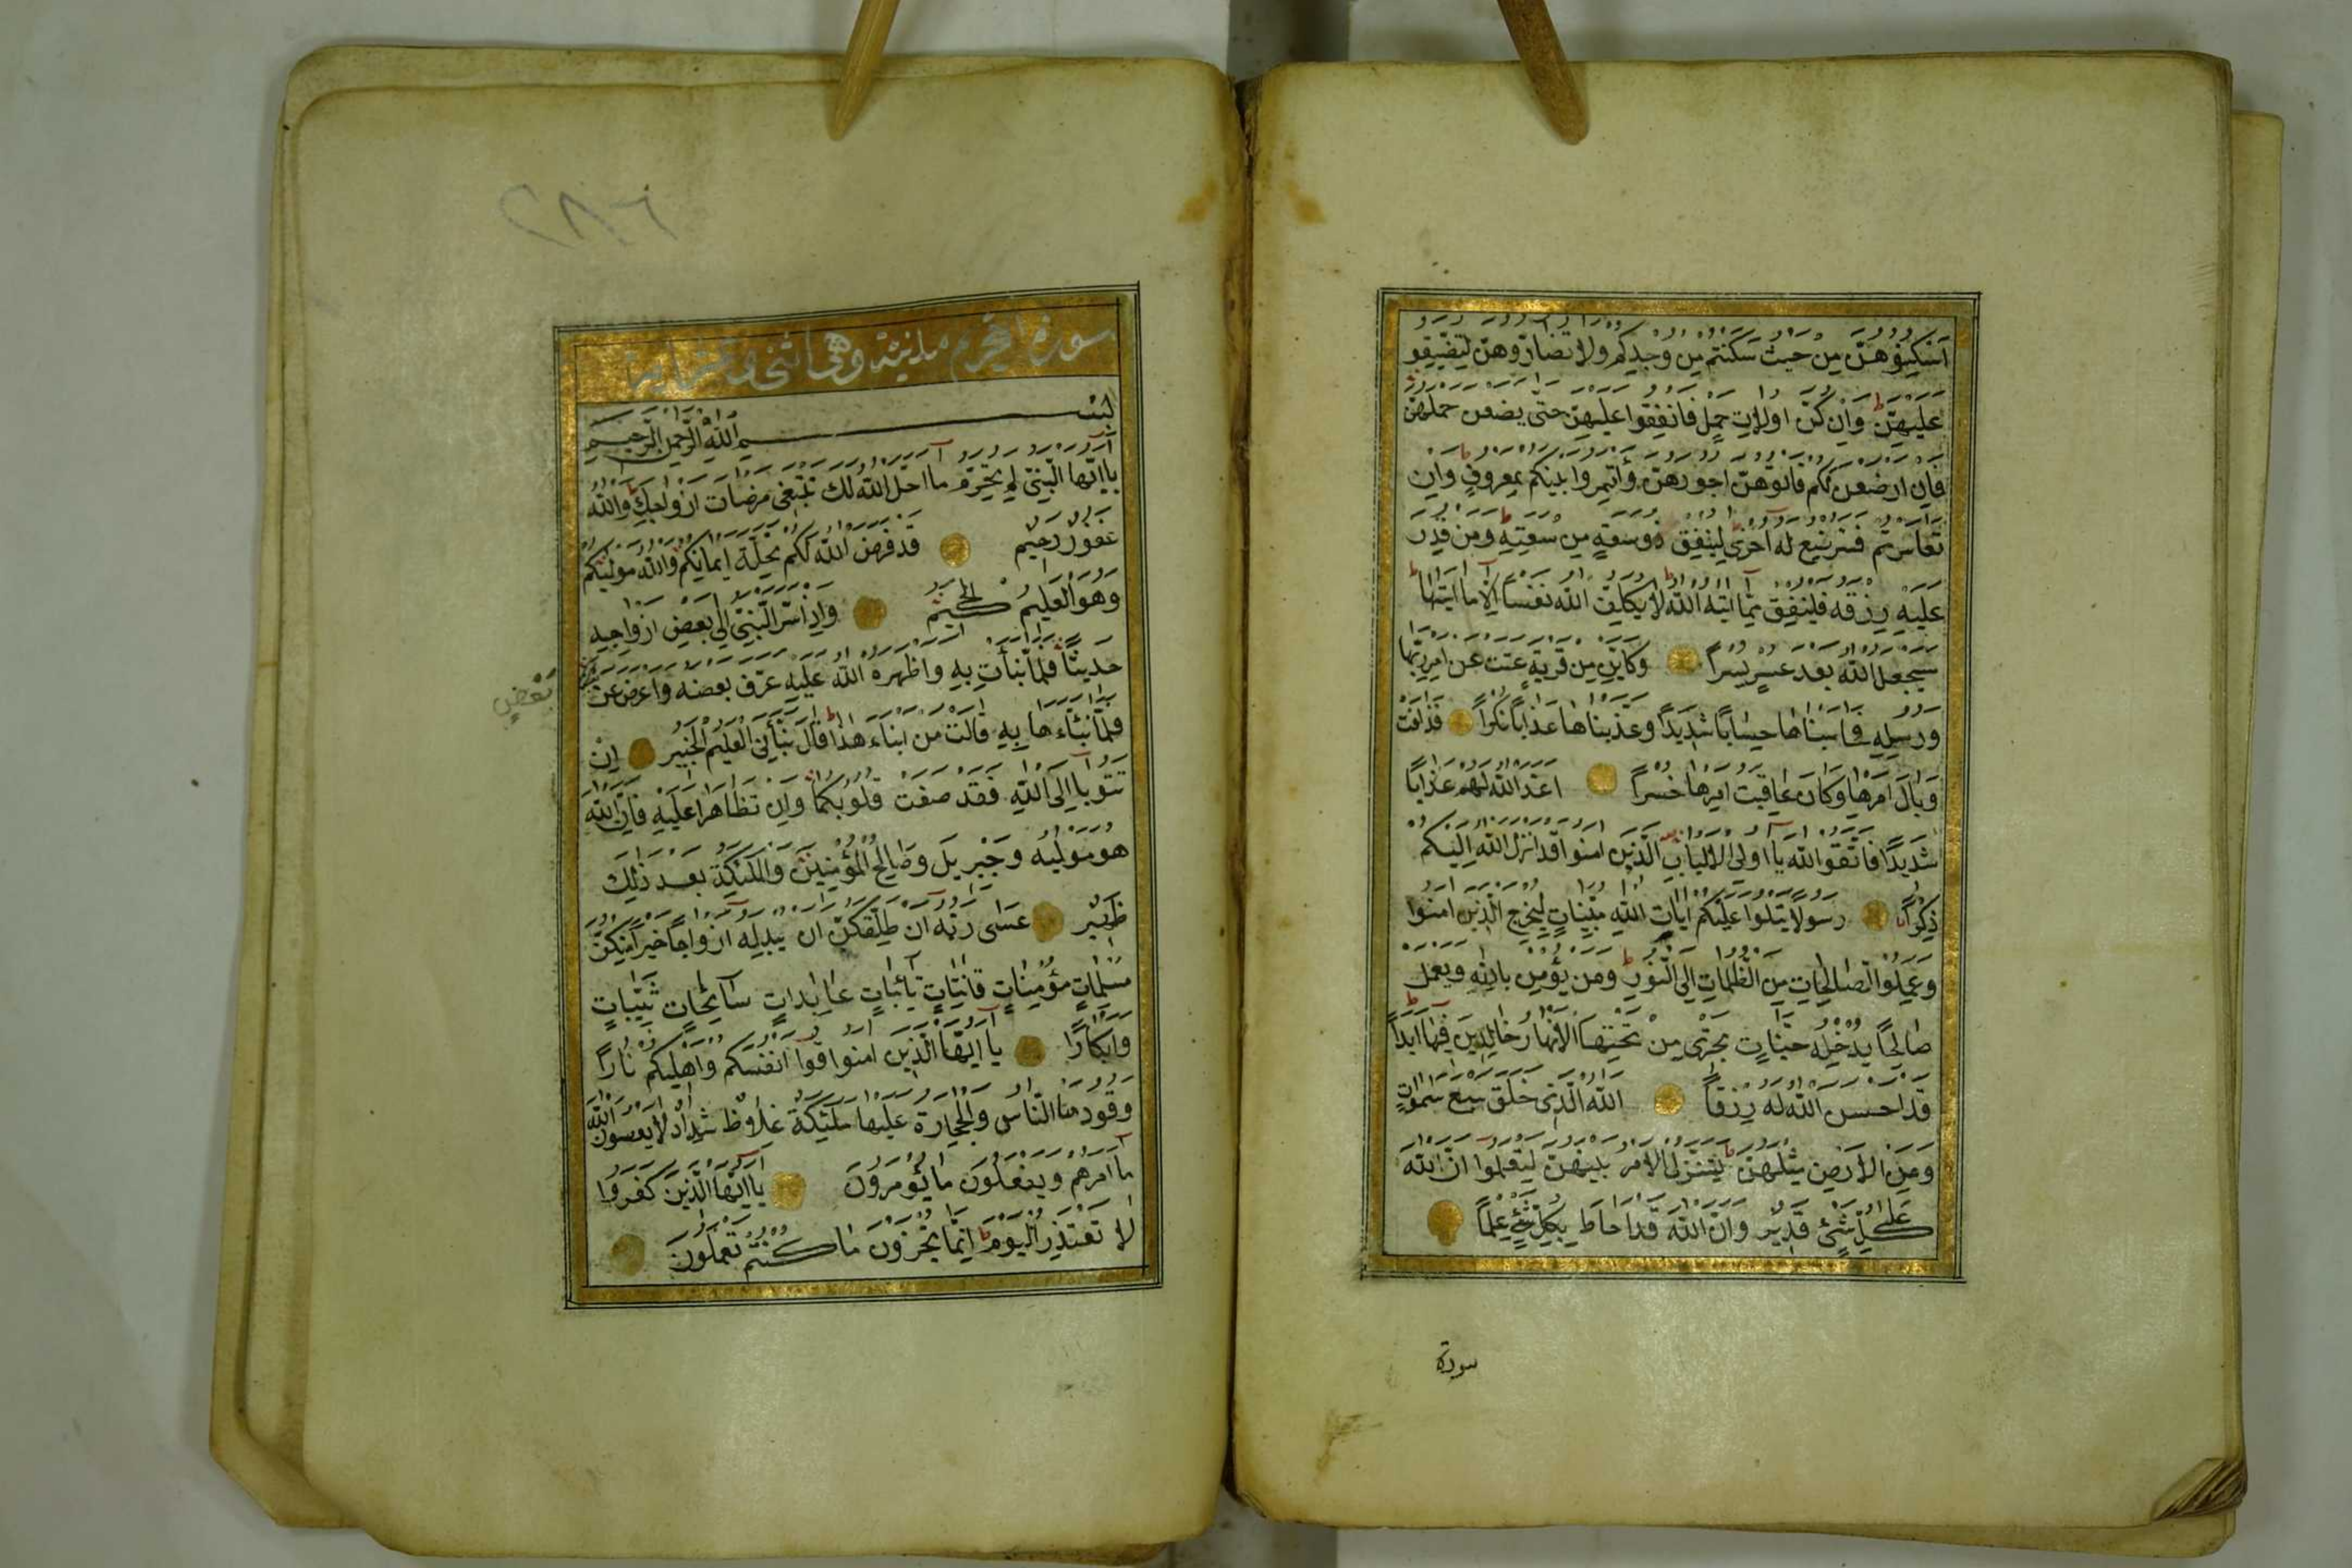 اسكنوهن من حيث سكنتم من وجدكم ولا تضاروهن لتضيقو
عليهن وان كن اولات حمل فانفقوا عليهن حتى يضعن حملهن
فان ارضعن لكم فاتوهن اجورهن وأتمروا بينكم بمعروف وان
تعاسرتم فسترضع له اخرى لينفق ذوسعة من سعته ومن قدر
عليه رزقه فلينفق مما اتيه الله لا يكلف الله نفسا الا ما اتيها
سيجعل الله بعد عسر يسرا وكاين من قرية عتت عن امر ربها
ورسله فحاسبناها حسابا شديدا وعذبناها عذابا نكرا فذاقت
وبال امرها وكان عاقبت امرها خسرا اعد الله لهم عذابا
شديدا فاتقوا الله يا اولى الالباب الذين امنوا قد انزل الله اليكم
ذكرا رسولا يتلوا عليكم ايات الله مبينات ليخرج الذين امنوا
وعملوا الصالحات من الظلمات الى النور ومن يؤمن بالله ويعمل
صالحا يدخله جنات تجرى من تحتها الانهار خالدين فيها ابدا
قد احسن الله له رزقا الله الذى خلق سبع سموات
ومن الارض مثلهن يتنزل الامر بينهن لتعلموا ان الله
على كل شئ قدير وان الله قد احاط بكل شئ علما
سورة
٢٨٦
سورة التحريم مدنية وهى اثنى وعشر اية
بسم الله الرحمن الرحيم
يا ايها النبى لم تحرم ما احل الله لك تبتغى مرضات ازواجك والله
غفور رحيم قد فرض الله لكم تحلة ايمانكم والله موليكم
وهو العليم الحكيم واذ اسر النبى الى بعض ازواجه
حديثا فلما نبأت به واظهره الله عليه عرف بعضه واعرض عن
بعض
فلما نبّاءها به قالت من انباءك هذا قال نبأنى العليم الخبير ان
تتوبا الى الله فقد صغت قلوبكما وان تظاهرا عليه فان الله
هو موليه وجبريل وصالح المؤمنين والملئكة بعد ذلك
ظهير عسى ربه ان طلقكن ان يبدله ازواجا خيرا منكن
مسلمات مؤمنات قانتات تائبات عابدات سائحات ثيبات
وابكارا يا ايها الذين امنوا قوا انفسكم واهليكم نارا
وقودها الناس والحجارة عليها ملئكة غلاظ شداد لا يعصون الله
ما امرهم ويفعلون ما يؤمرون يا ايها الذين كفروا
لا تعتذروا اليوم انما تجزون ما كنتم تعملون